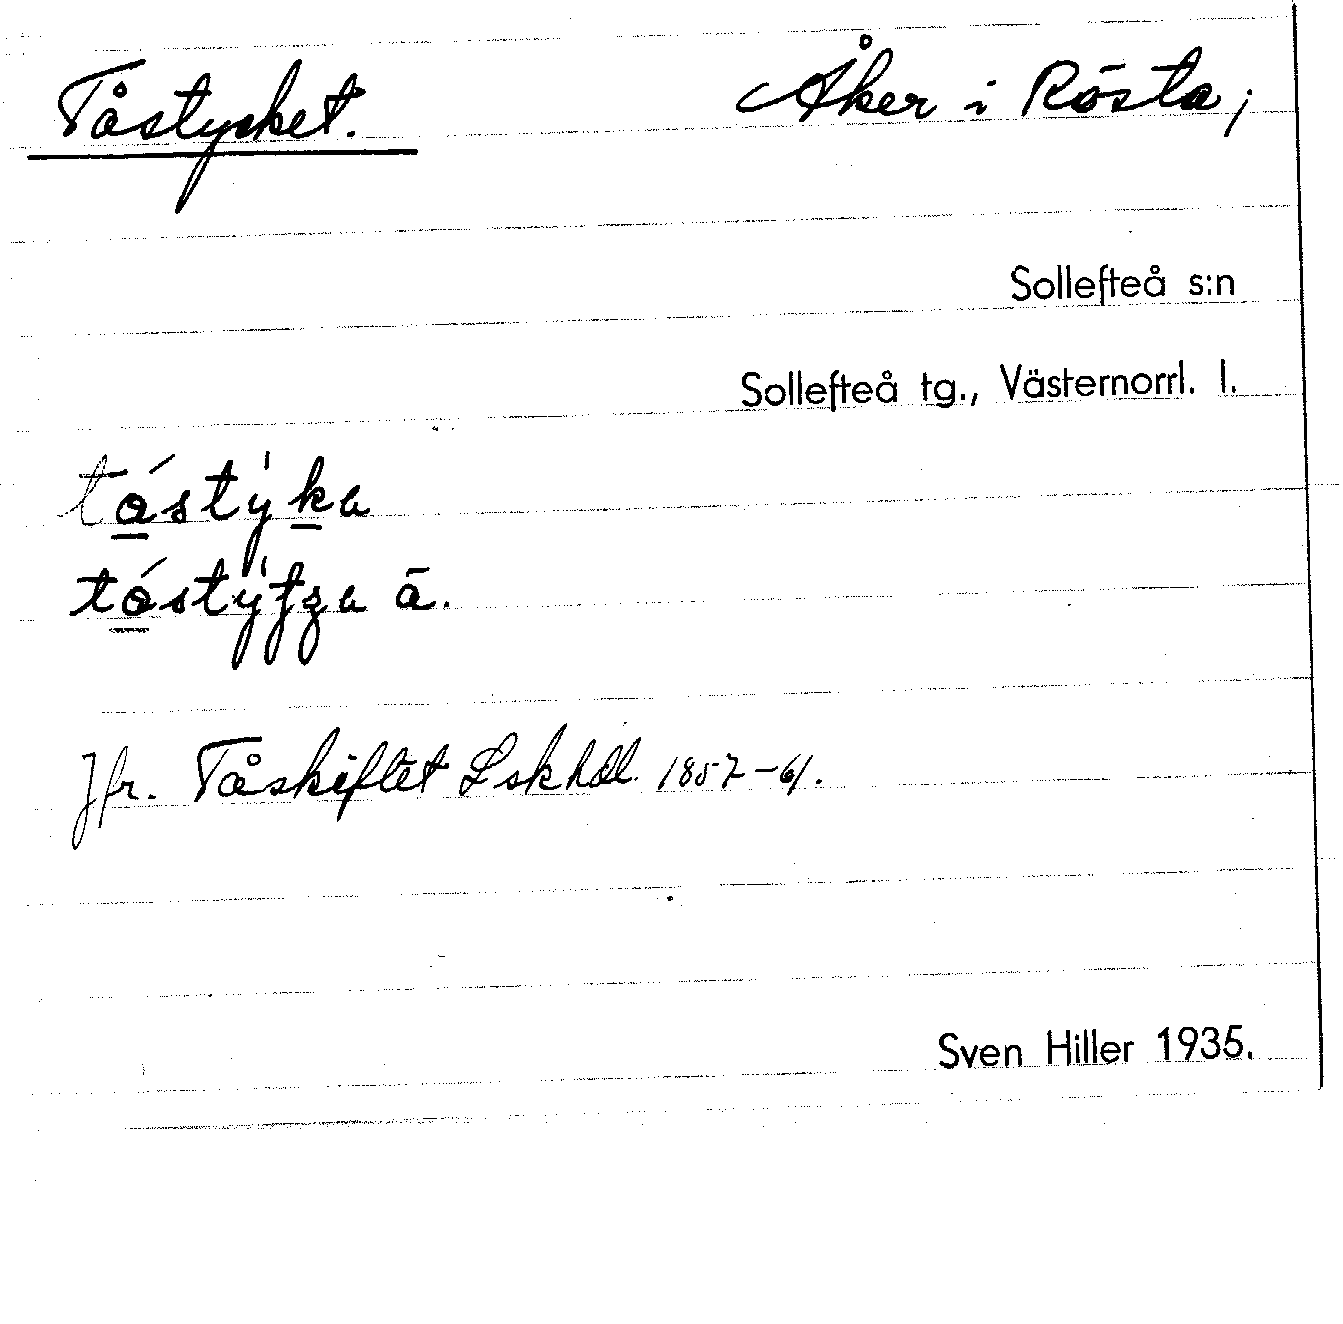 Tåstycket. Åker i Rösta;
Sollefteå s:n
Sollefteå tg., Västernorrl. l.
Jfr. Tåskiftet Lskhdl. 1857-61.
Sven Hiller 1935.